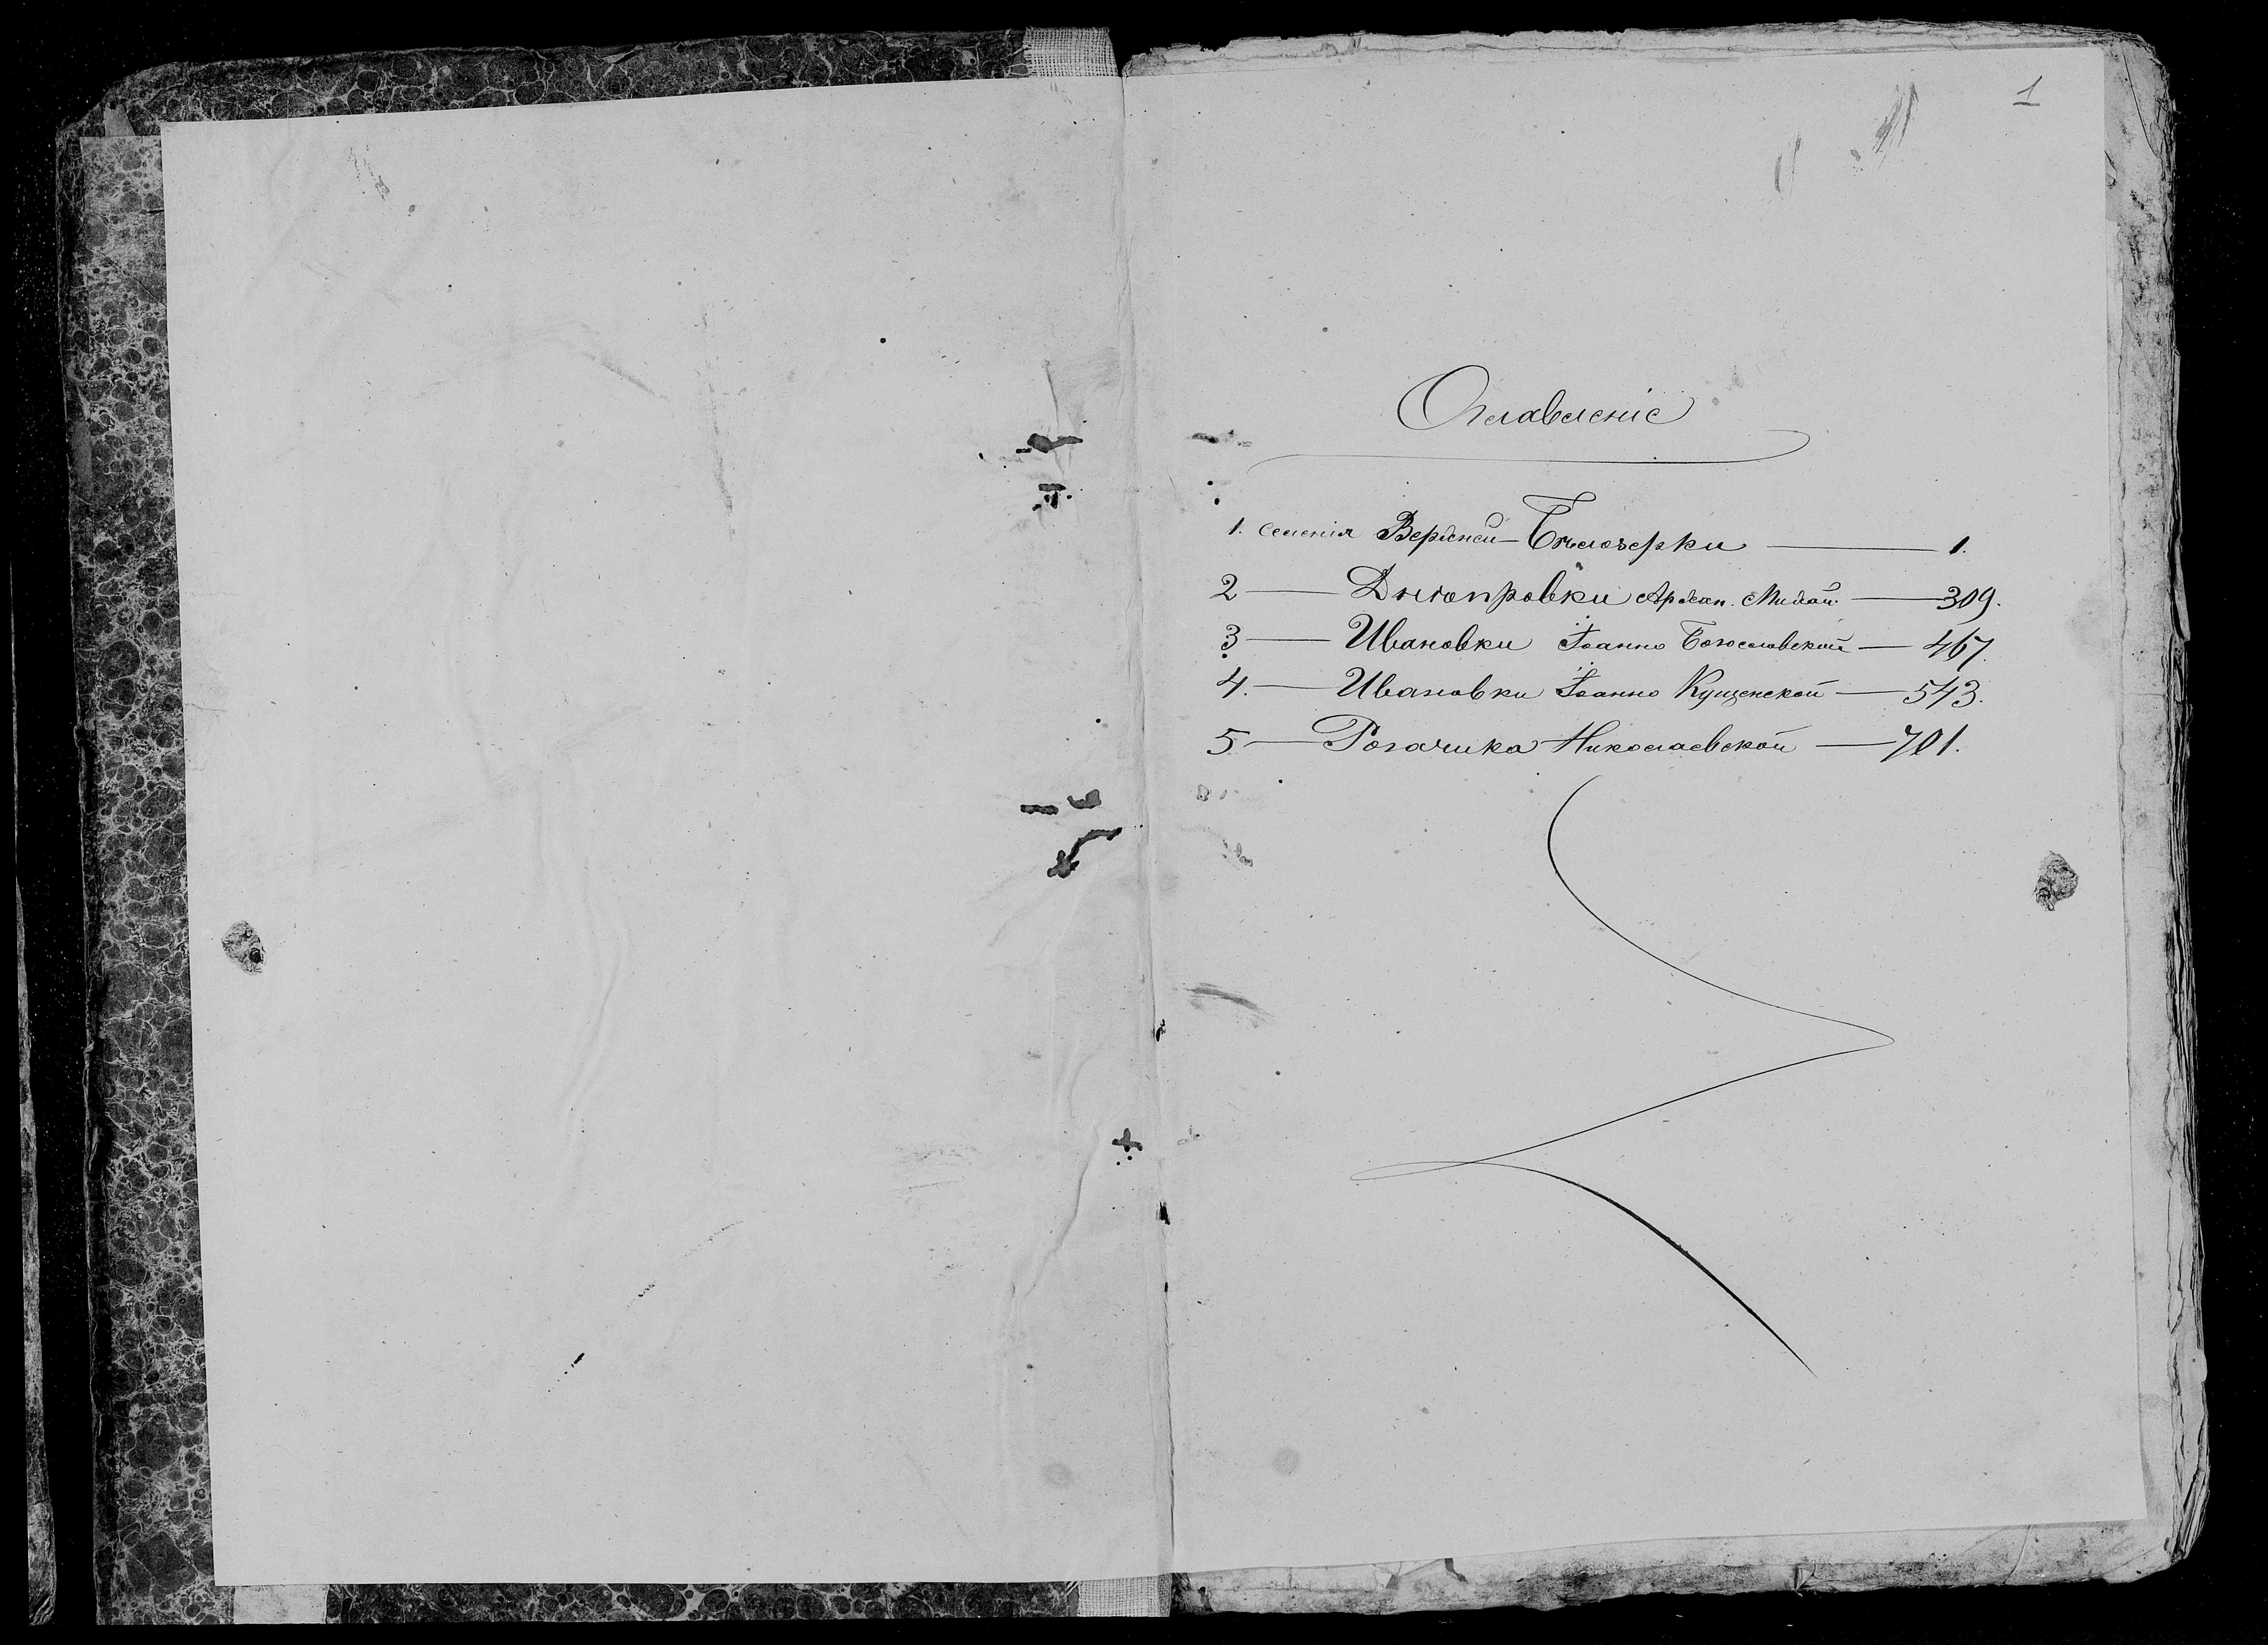 1
Оглавленіе
1. селенія Верхней-Бѣлозерки — 1.
2 — Днѣпровки Архан. Михаи. — 309.
3 — Ивановки Іоанно Богословской — 467.
4. — Ивановки Іоанно Кущенской — 543.
5 — Рогачика Николаевской — 701.